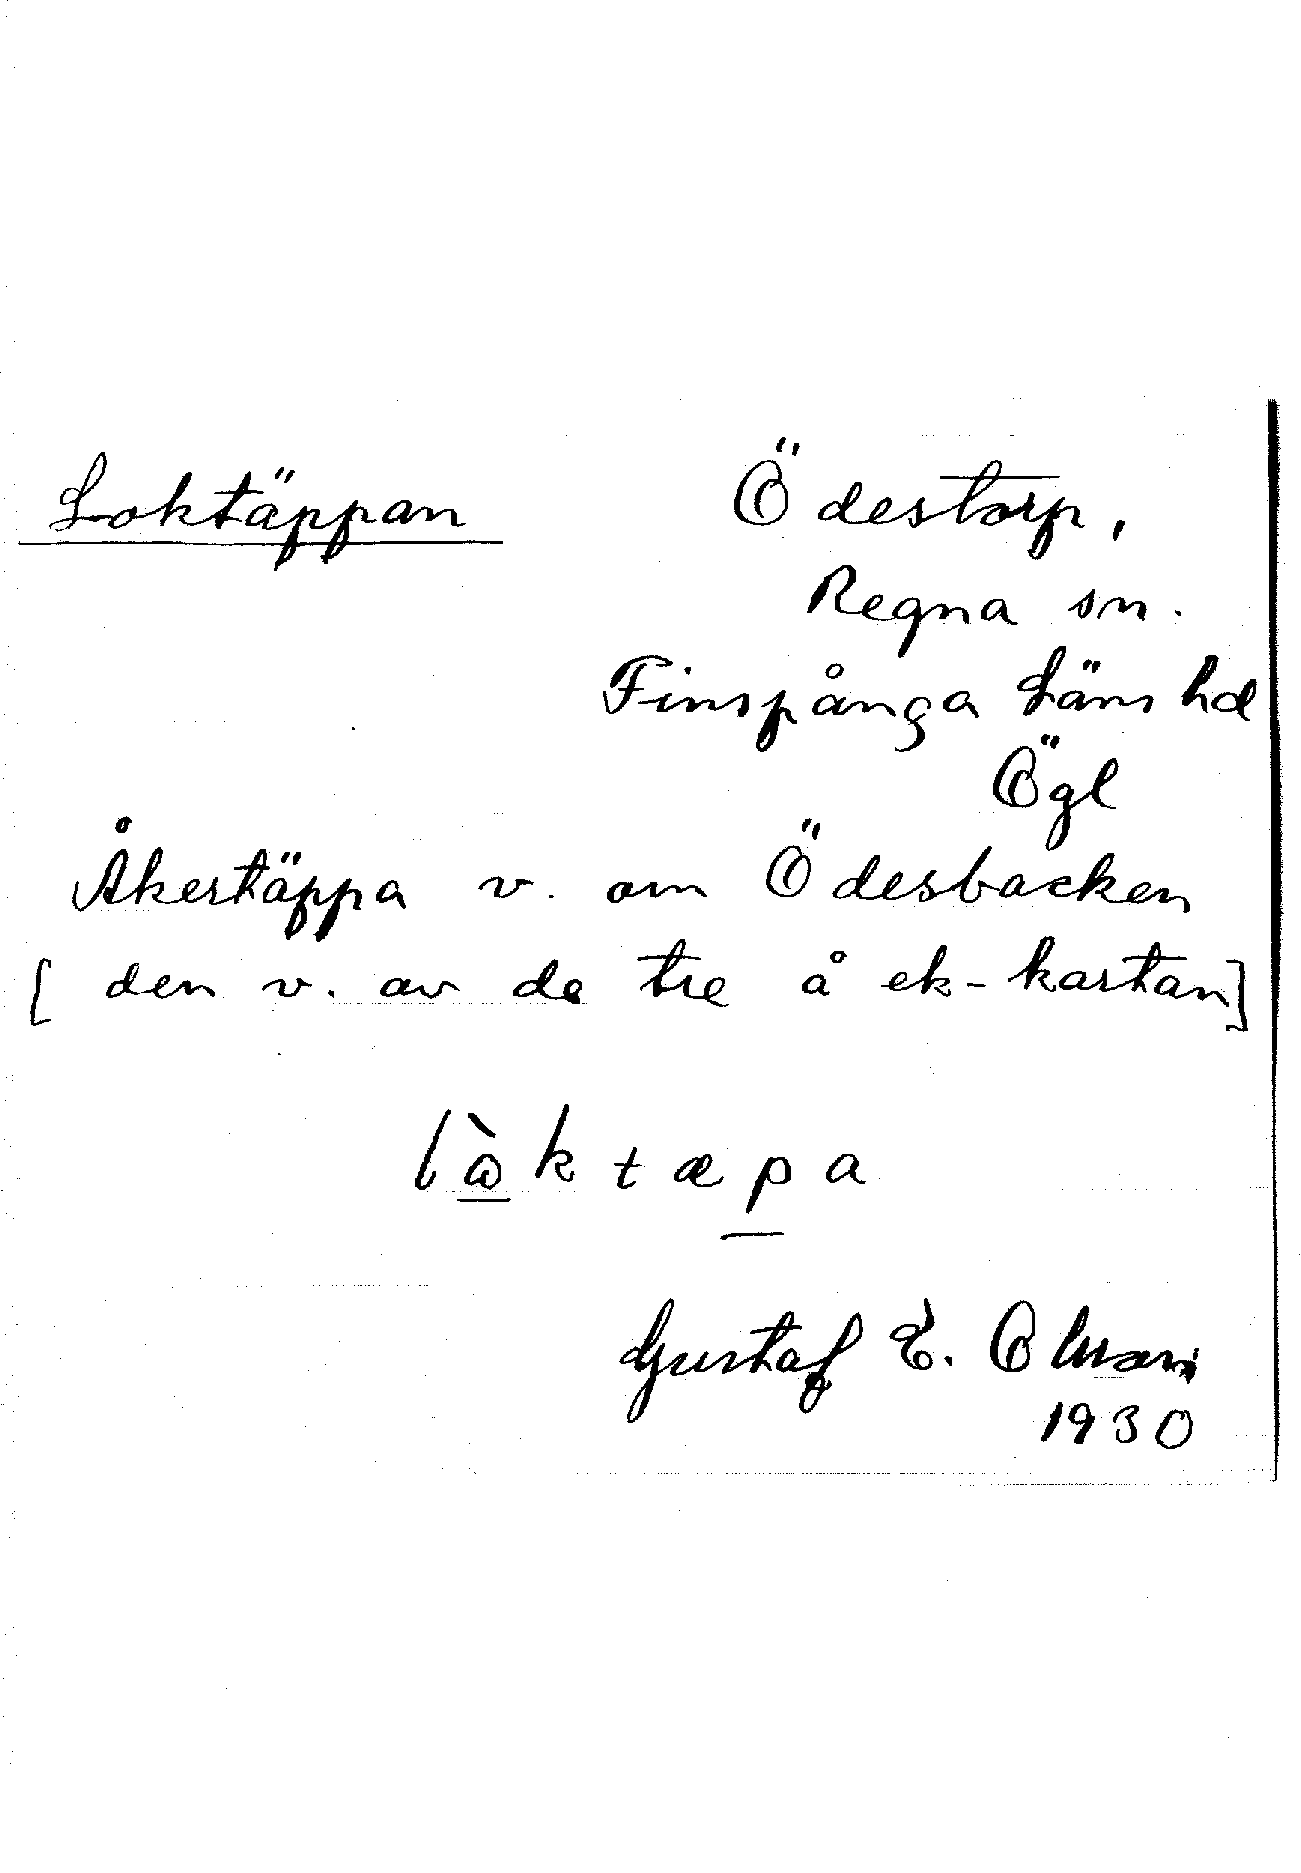 Loktäppan
Ödestorp,
Regna sn.
Finspånga Läns hd
Ögl
Åkertäppa v. om Ödesbacken
[den v. av de tre å ek-kartan]
lò̲ktæp̲a
Gustaf E. Olsson
1930